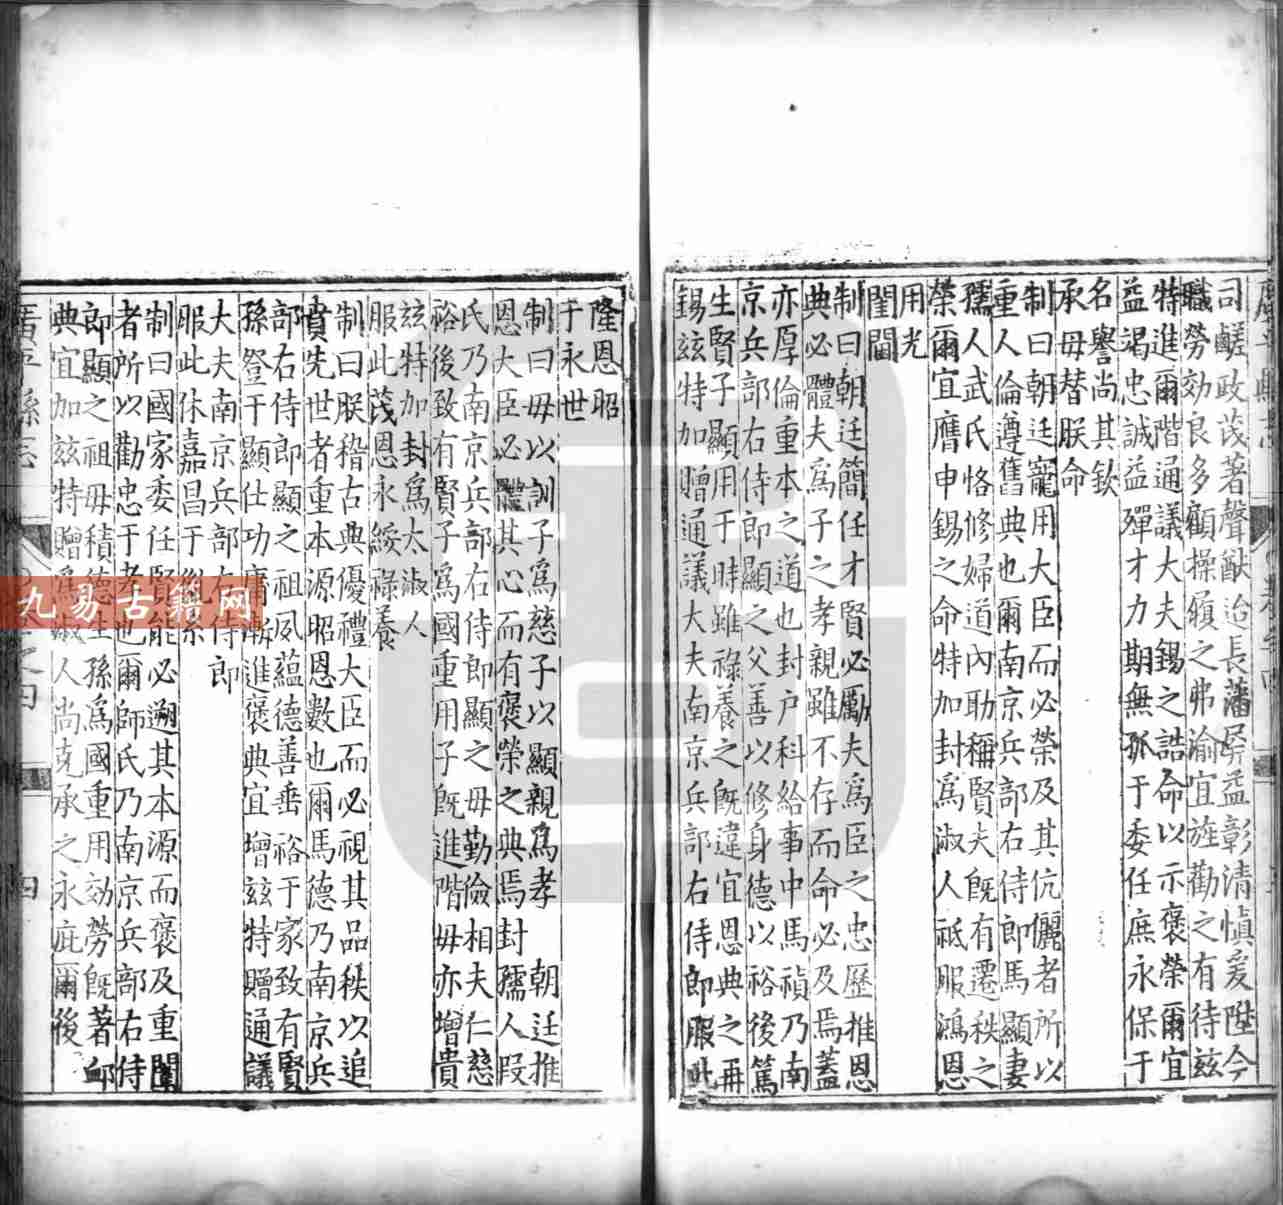 司鹺政茂著聲猷迨長藩屏益彰清慎爰陞今
職勞効良多顧操履之弗渝宜旌勸之有待玆
特進爾階通議大夫錫之誥命以示褒榮爾宜
益渴忠誠益殫才力期無孤于委任庶永保于
名譽尚其欽
承毋替朕命
制曰朝廷寵用大臣而必榮及其伉儷者所以
重人倫遵舊典也爾南京兵部右侍郎馬顯妻
孺人武氏恪修婦道內助稱賢夫既有遷秩之
榮爾宜膺申錫之命特加封爲淑人祗服鴻恩
用光
閨閫
制曰朝廷簡任才賢必勵夫爲臣之忠歷推恩
典必體夫爲子之孝親雖不存而命必及焉蓋
亦厚倫重本之道也封户科給事中馬禎乃南
京兵部右侍郎顯之父善以修身德以裕後篤
生賢子顯用于時雖祿養之既違宜恩典之再
錫玆特加贈通議大夫南京兵部右侍郎服此
隆恩昭
于永世
制曰毋以訓子爲慈子以顯親爲孝 朝廷推
恩大臣必體其心而有褒榮之典焉封孺人段
氏乃南京兵部右侍郎顯之毋勤儉相夫仁慈
裕後致有賢子爲國重用子既進階毋亦增貴
玆特加封爲太淑人
服此茂恩永綏祿養
制曰朕稽古典優禮大臣而必視其品秩以追
賁先世者重本源昭恩數也爾馬德乃南京兵
部右侍郎顯之祖夙蘊德善垂裕于家致有賢
孫登于顯仕功庸漸進褒典宜增玆特贈通議
大夫南京兵部右侍郎
服此休嘉昌于
制曰國家委任賢能必遡其本源而褒及重闈
者所以勸忠于孝也爾師氏乃南京兵部右侍
郎顯之祖毋積德生孫爲國重用効勞既著邮
典宜加玆特贈爲淑人尚克承之永庇爾後
廣平縣志 四 四
九易古籍网